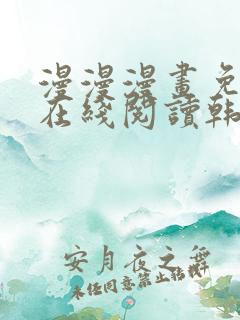 漫漫漫畫免
在綫閱讀韩
安月夜之舞
未经同意禁止转载